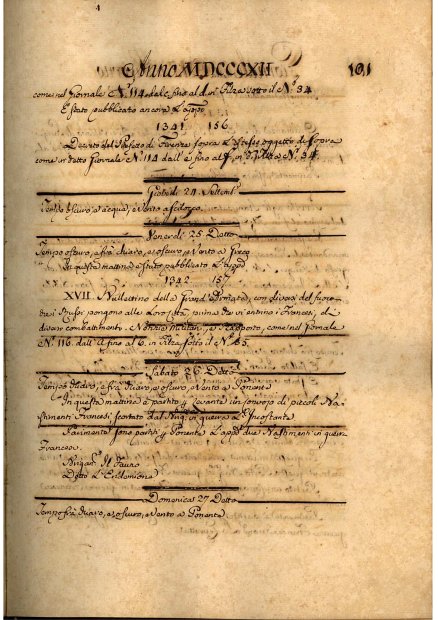 4
Anno MDCCCXII 101
come nel Giornale N.º 114 dall' fino al d. in Filza sotto il N.º 34
È stato pubblicato ancora l'app.º
1341 156
Decreto del Prefetto di Firenze sopra l'istesso oggetto di sopra
come in detto Giornale N.º 114 dall' e fino al f. in Filza N.º 34.
Giovedì 24 Settemb.e
Tempo oscuro, e acqua, e Vento a Scilocco.
Venerdì 25 Detto
Tempo oscuro, e frà chiaro, e oscuro, e Vento a Greco
In questa mattina è stato pubblicato l'app.º
1342 157
XVII Bullettino della Grand'Armata, con
i Russi pongono alle loro prima che vi entrino i Francesi, e
diversi combattimenti. Notizie Militari, e Rapporto, come nel Giornale
N.º 116. dall' fino al 6. in Filza sotto il N.º 35.
Sabato 26 Detto
Tempo chiaro, e frà chiaro, e oscuro, e Vento a Ponente
In questa mattina è partito p. Levante un convoio di piccoli Ba-
stimenti Francesi scortato dal Brig. in guerra l'Incostante
Parimente sono partiti p. Ponente l'app.i due Bastimenti in guerra
Francesi.
Brigan.º Il Tauro
Detto L'Endimione
Domenica 27 Detto
Tempo frà chiaro, e oscuro, e Vento a Ponente